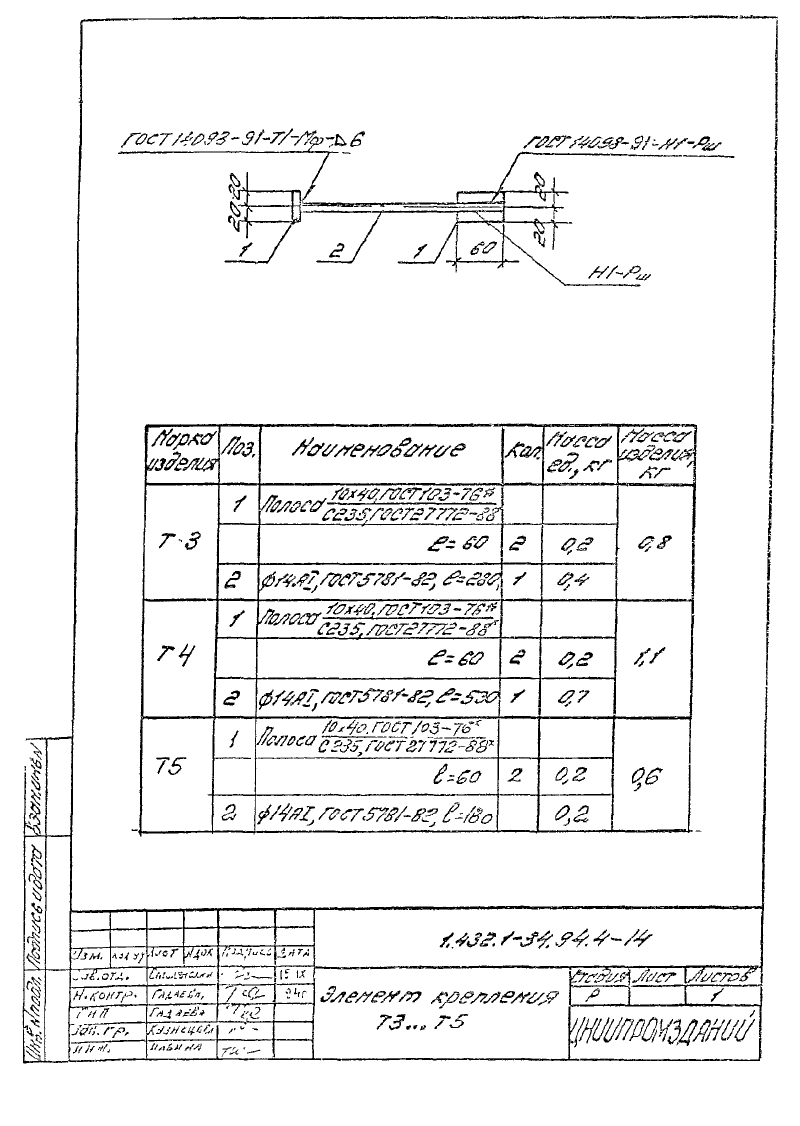 ГОСТ 14093-91-Т1-Мф-Δ6
ГОСТ 14098-91-Н1-Рш
20 20
20 20
1
2
1
60
Н1-Рш
Марка изделия Поз. Наименование Кол. Масса ед., кг Масса изделия, кг
Т-3
1 Полоса 10х40, ГОСТ 103-76*
С235, ГОСТ 27772-88
ℓ=60 2 0,2 0,8
2 ф14АI, ГОСТ 5781-82, ℓ=280, 1 0,4
Т4
1 Полоса 10х40, ГОСТ 103-76*
С235, ГОСТ 27772-88*
ℓ=60 2 0,2 1,1
2 ф14АI, ГОСТ 5781-82, ℓ=530 1 0,7
Т5
1 Полоса 10х40. ГОСТ 103-76*
С235, ГОСТ 27772-88*
ℓ=60 2 0,2 0,6
2 ф14АI, ГОСТ 5781-82, ℓ=180 0,2
Инв.№подл. Подпись и дата
1.432.1-34.94.4-14
Изм. Лист №док Подпись Дата
Н.контр. Гадаева 94г
ГИП Гадаева
Зав. гр. Кузнецова
Инж. Ильина
Элемент крепления
Т3... Т5
Стадия Лист Листов
Р 1
ЦНИИПРОМЗДАНИЙ